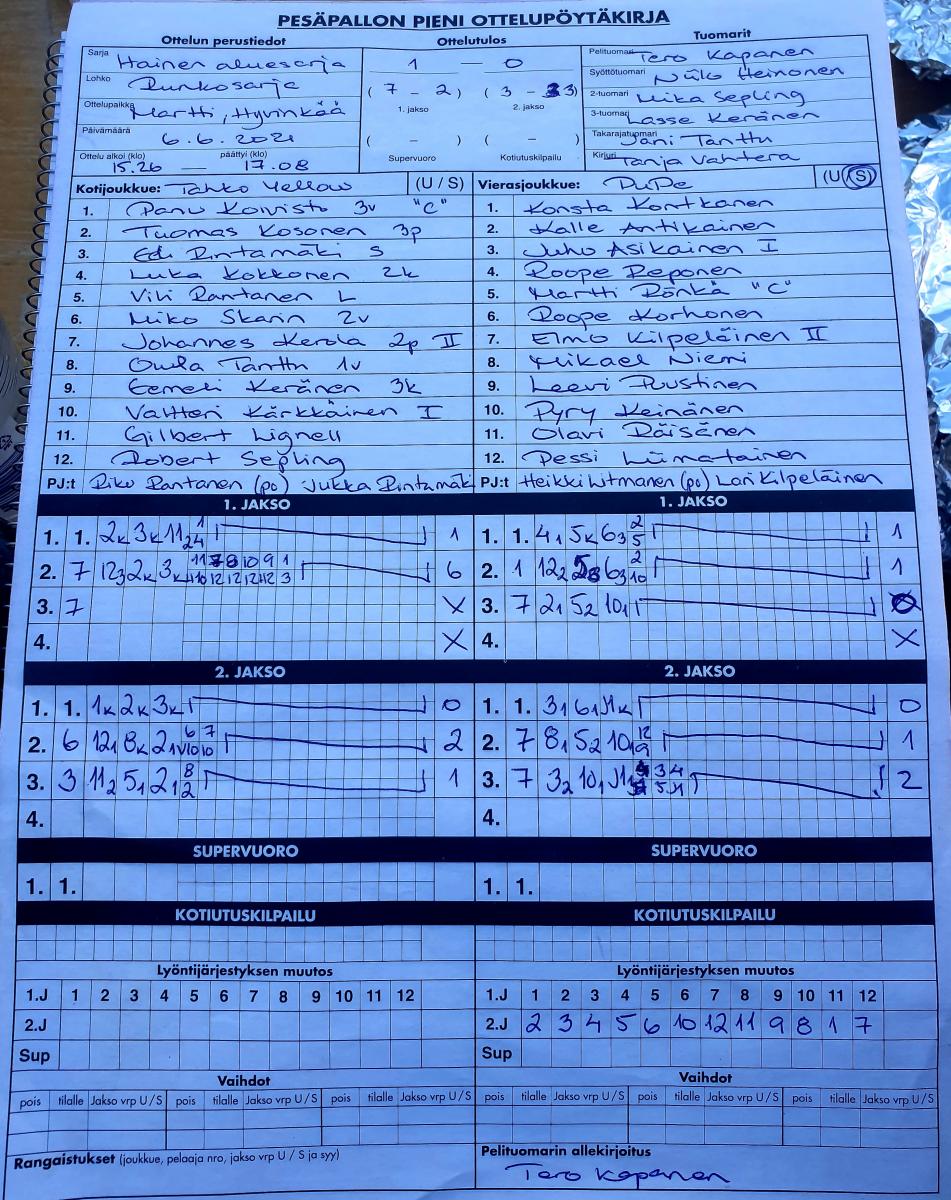 PESÄPALLON PIENI OTTELUPÖYTÄKIRJA
Ottelun perustiedot Ottelutulos Tuomarit
Sarja Hainen aluesarja
Lohko Runkosarja
Ottelupaikka Martti, Hyvinkää
Päivämäärä 6.6.2021
Ottelu alkoi (klo) päättyi (klo)
15.26 — 17.08
1 — 0
(7 - 2) (3 - 3)
1. jakso 2. jakso
( - ) ( - )
Supervuoro Kotiutuskilpailu
Pelituomari Tero Kapanen
Syöttötuomari Niilo Heinonen
2-tuomari Mika Sepling
3-tuomari Lasse Keränen
Takarajatuomari Jani Tanttu
Kirjuri Tanja Vahtera
Kotijoukkue: Tahko Yellow (U / S)
1. Panu Koivisto 3v "C"
2. Tuomas Kosonen 3p
3. Edi Rintamäki S
4. Luka Kokkonen 2k
5. Vili Rantanen L
6. Miko Skarin 2v
7. Johannes Kerola 2p II
8. Tanttu 1v
9. Eemeli Keränen 3k
10. Valtteri Kärkkäinen I
11. Gilbert Lignell
12. Robert Sepling
PJ:t Riko Rantanen (po) Jukka Rintamäki
Vierasjoukkue: PuPe (U / S)
1. Konsta Kontkanen
2. Kalle Antikainen
3. Juho Asikainen I
4. Roope Reponen
5. Martti Rönkä "C"
6. Roope Korhonen
7. Elmo Kilpeläinen II
8. Mikael Niemi
9. Leevi Puustinen
10. Pyry Keinänen
11. Olavi Räisänen
12. Pessi Liimatainen
PJ:t Heikki Litmanen (po) Lari Kilpeläinen
1. JAKSO 1. JAKSO
1. 1. 2K 3K 11 1
2. 7 12 3 2K 3K 6
3. 7 X
4. X
1. 1. 4 1 5K 6 3 2 5 1
2. 1 12 2 6 3 2 10 1
3. 7 2 1 5 2 10 1
4. X
2. JAKSO 2. JAKSO
1. 1. 1K 2K 3K 0
2. 6 12 1 8K 2 1 2
3. 3 11 2 5 1 2 1 8 2 1
4.
1. 1. 3 1 6 1 11K 0
2. 7 8 1 5 2 10 1 12 9 1
3. 7 3 2 10 1 11 2
4.
SUPERVUORO SUPERVUORO
1. 1. 1. 1.
KOTIUTUSKILPAILU KOTIUTUSKILPAILU
Lyöntijärjestyksen muutos Lyöntijärjestyksen muutos
1.J 1 2 3 4 5 6 7 8 9 10 11 12
2.J
Sup
1.J 1 2 3 4 5 6 7 8 9 10 11 12
2.J 2 3 4 5 6 10 12 11 9 8 1 7
Sup
Vaihdot Vaihdot
pois tilalle Jakso vrp U / S pois tilalle Jakso vrp U / S pois tilalle Jakso vrp U / S
pois tilalle Jakso vrp U / S pois tilalle Jakso vrp U / S pois tilalle Jakso vrp U / S
Rangaistukset (joukkue, pelaaja nro, jakso vrp U / S ja syy)
Pelituomarin allekirjoitus
Tero Kapanen